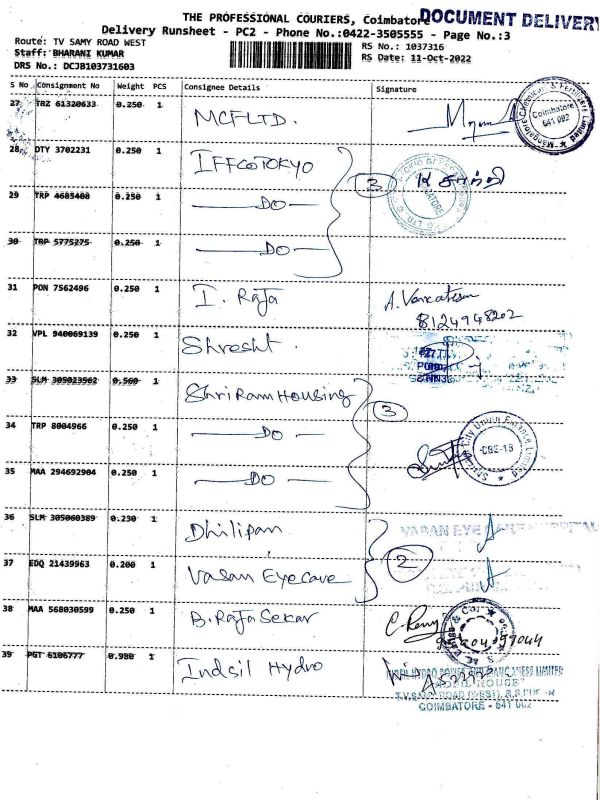 THE PROFESSIONAL COURIERS, Coimbatore
DOCUMENT DELIVERY
Delivery Runsheet - PC2 - Phone No.:0422-3505555 - Page No.:3
Route: TV SAMY ROAD WEST
RS No.: 1037316
Staff: BHARANI KUMAR
RS Date: 11-Oct-2022
DRS No.: DCJB103731603
S No Consignment No Weight PCS Consignee Details Signature
27 TRZ 61320633 0.250 1 MCFLTD.
Mangalore Chemicals & Fertilizers Limited
Coimbatore
641 002
28 DTY 3702231 0.250 1 IFFCOTOKYO 3 K சாந்தி
29 TRP 4685408 0.250 1 DO
30 TRP 5775275 0.250 1 DO
31 PON 7562496 0.250 1 I. Raja A. Venkatesan
8124948202
32 VPL 940069139 0.250 1 Shresht
33 SLM 305023562 0.500 1 ShriRam Housing 3
34 TRP 8004966 0.250 1 DO
CBE-13
35 MAA 294692904 0.250 1 DO
36 SLM 305060389 0.230 1 Dhilipan
VASAN EYE CARE HOSPITAL
37 EDQ 21439963 0.200 1 Vasan Eyecare 2
38 MAA 568030599 0.250 1 B. Raja Sekar
39 PGT 6106777 0.980 1 Indsil Hydro
COIMBATORE - 641 002